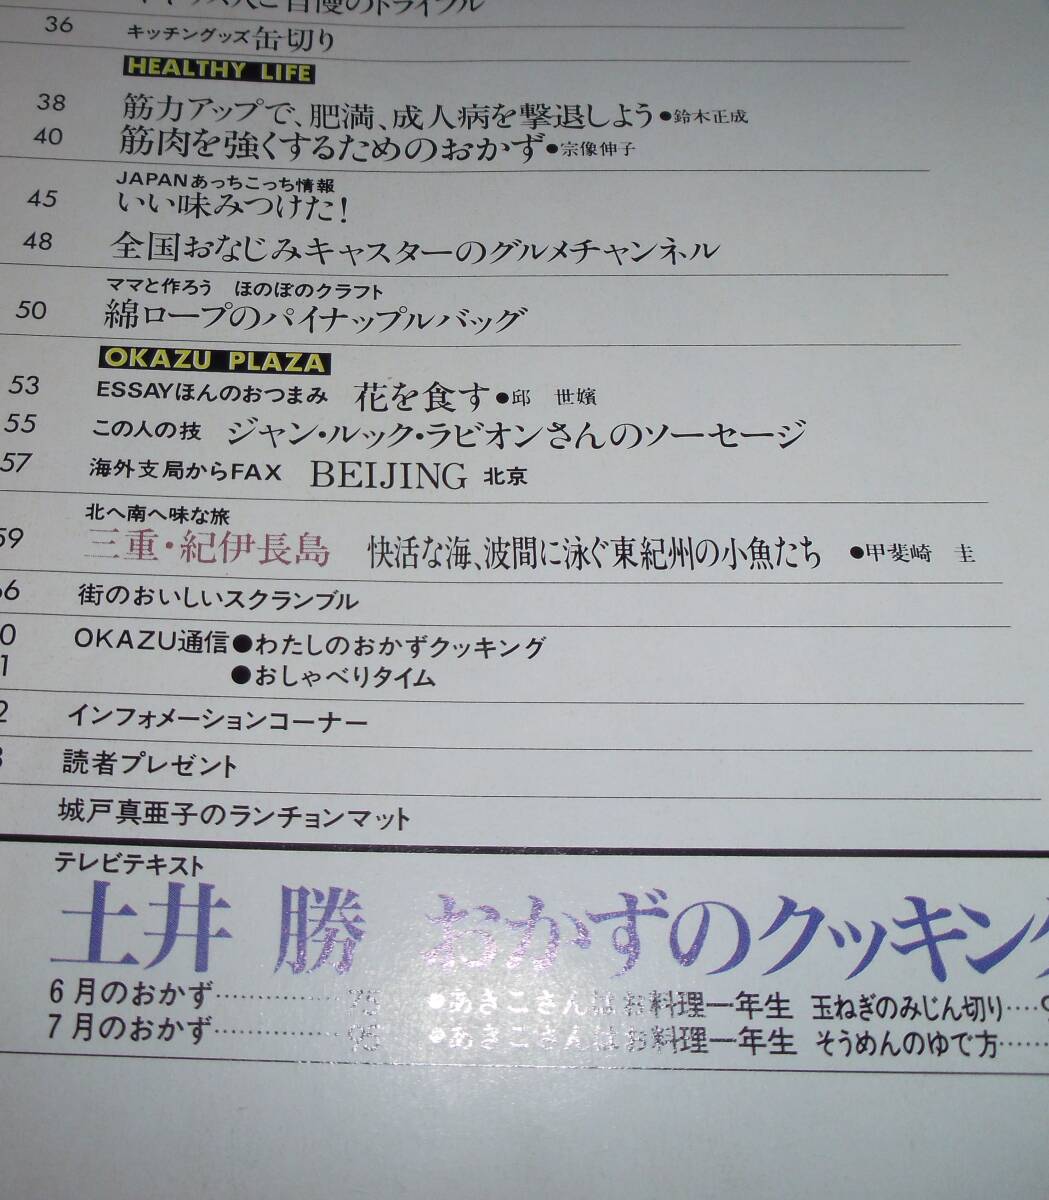 自慢のドライブル
36 キッチングッズ 缶切り
HEALTHY LIFE
38 筋力アップで、肥満、成人病を撃退しよう●鈴木正成
40 筋肉を強くするためのおかず●宗像伸子
JAPANあっちこっち情報
45 いい味みつけた!
48 全国おなじみキャスターのグルメチャンネル
ママと作ろう ほのぼのクラフト
50 綿ロープのパイナップルバッグ
OKAZU PLAZA
53 ESSAYほんのおつまみ 花を食す●邱 世嬪
55 この人の技 ジャン・ルック・ラビオンさんのソーセージ
57 海外支局からFAX BEIJING 北京
北へ南へ味な旅
59 三重・紀伊長島 快活な海、波間に泳ぐ東紀州の小魚たち ●甲斐崎 圭
66 街のおいしいスクランブル
0 OKAZU通信●わたしのおかずクッキング
1 ●おしゃべりタイム
2 インフォメーションコーナー
3 読者プレゼント
城戸真亜子のランチョンマット
テレビテキスト
土井 勝 おかずのクッキング
6月のおかず……………75 ●あきこさんはお料理一年生 玉ねぎのみじん切り……9
7月のおかず……………95 ●あきこさんはお料理一年生 そうめんのゆで方……